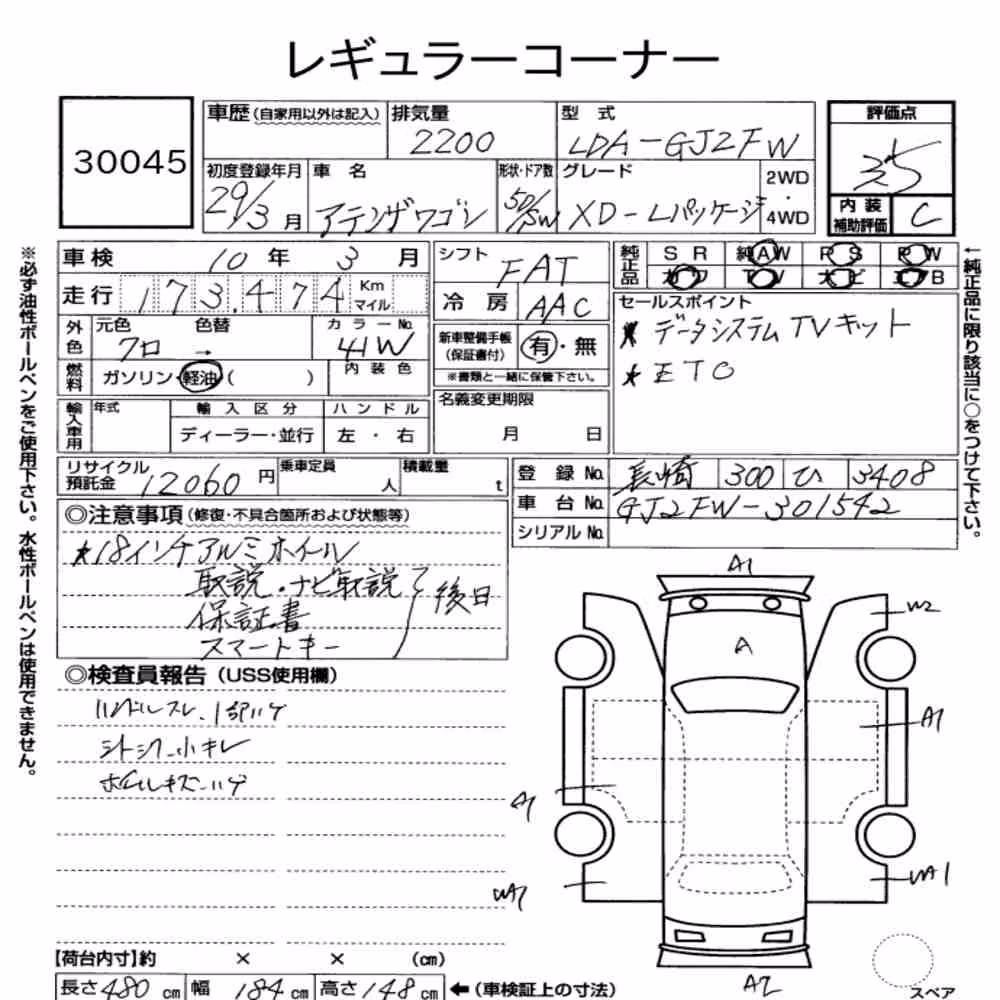 レギュラーコーナー
30045
車歴(自家用以外は記入)
排気量
2200
型 式
LDA-GJ2FW
評価点
3.5
初度登録年月
29/3月
車 名
アテンザワゴン
形状・ドア数
5D/SW
グレード
XD-Lパッケージ
2WD
・
4WD
内 装
補助評価
C
車検 10年 3月
シフト
FAT
純正品
S R 純AW P S P W
カワ T V ナビ エアB
走行 173,474 Km
マイル
冷 房
AAC
セールスポイント
★ データシステムTVキット
★ ETC
外色
元色 色替
クロ →
カラーNo.
41W
新車整備手帳
(保証書付)
有・無
※書類と一緒に保管下さい。
燃料
ガソリン・軽油( )
内 装 色
名義変更期限
月 日
輸入車用
年式
輸 入 区 分
ディーラー・並行
ハ ン ド ル
左 ・ 右
リサイクル
預託金
12060円
乗車定員
人
積載量
t
登 録 No. 長崎 300 ひ 3408
車 台 No. GJ2FW-301542
シリアルNo.
◎注意事項(修復・不具合箇所および状態等)
★18インチアルミホイール
取説・ナビ取説
保証書
スマートキー
後日
◎検査員報告(USS使用欄)
ハンドルスレ、1部ハゲ
シートシワ・小キレ
ホイールキズ・ハゲ
A1
A
W2
A1
A1
WA1
WA1
A2
スペア
【荷台内寸】約 × × (cm)
長さ480cm 幅184cm 高さ148cm ←(車検証上の寸法)
※必ず油性ボールペンをご使用下さい。水性ボールペンは使用できません。
←純正品に限り該当に○をつけて下さい。